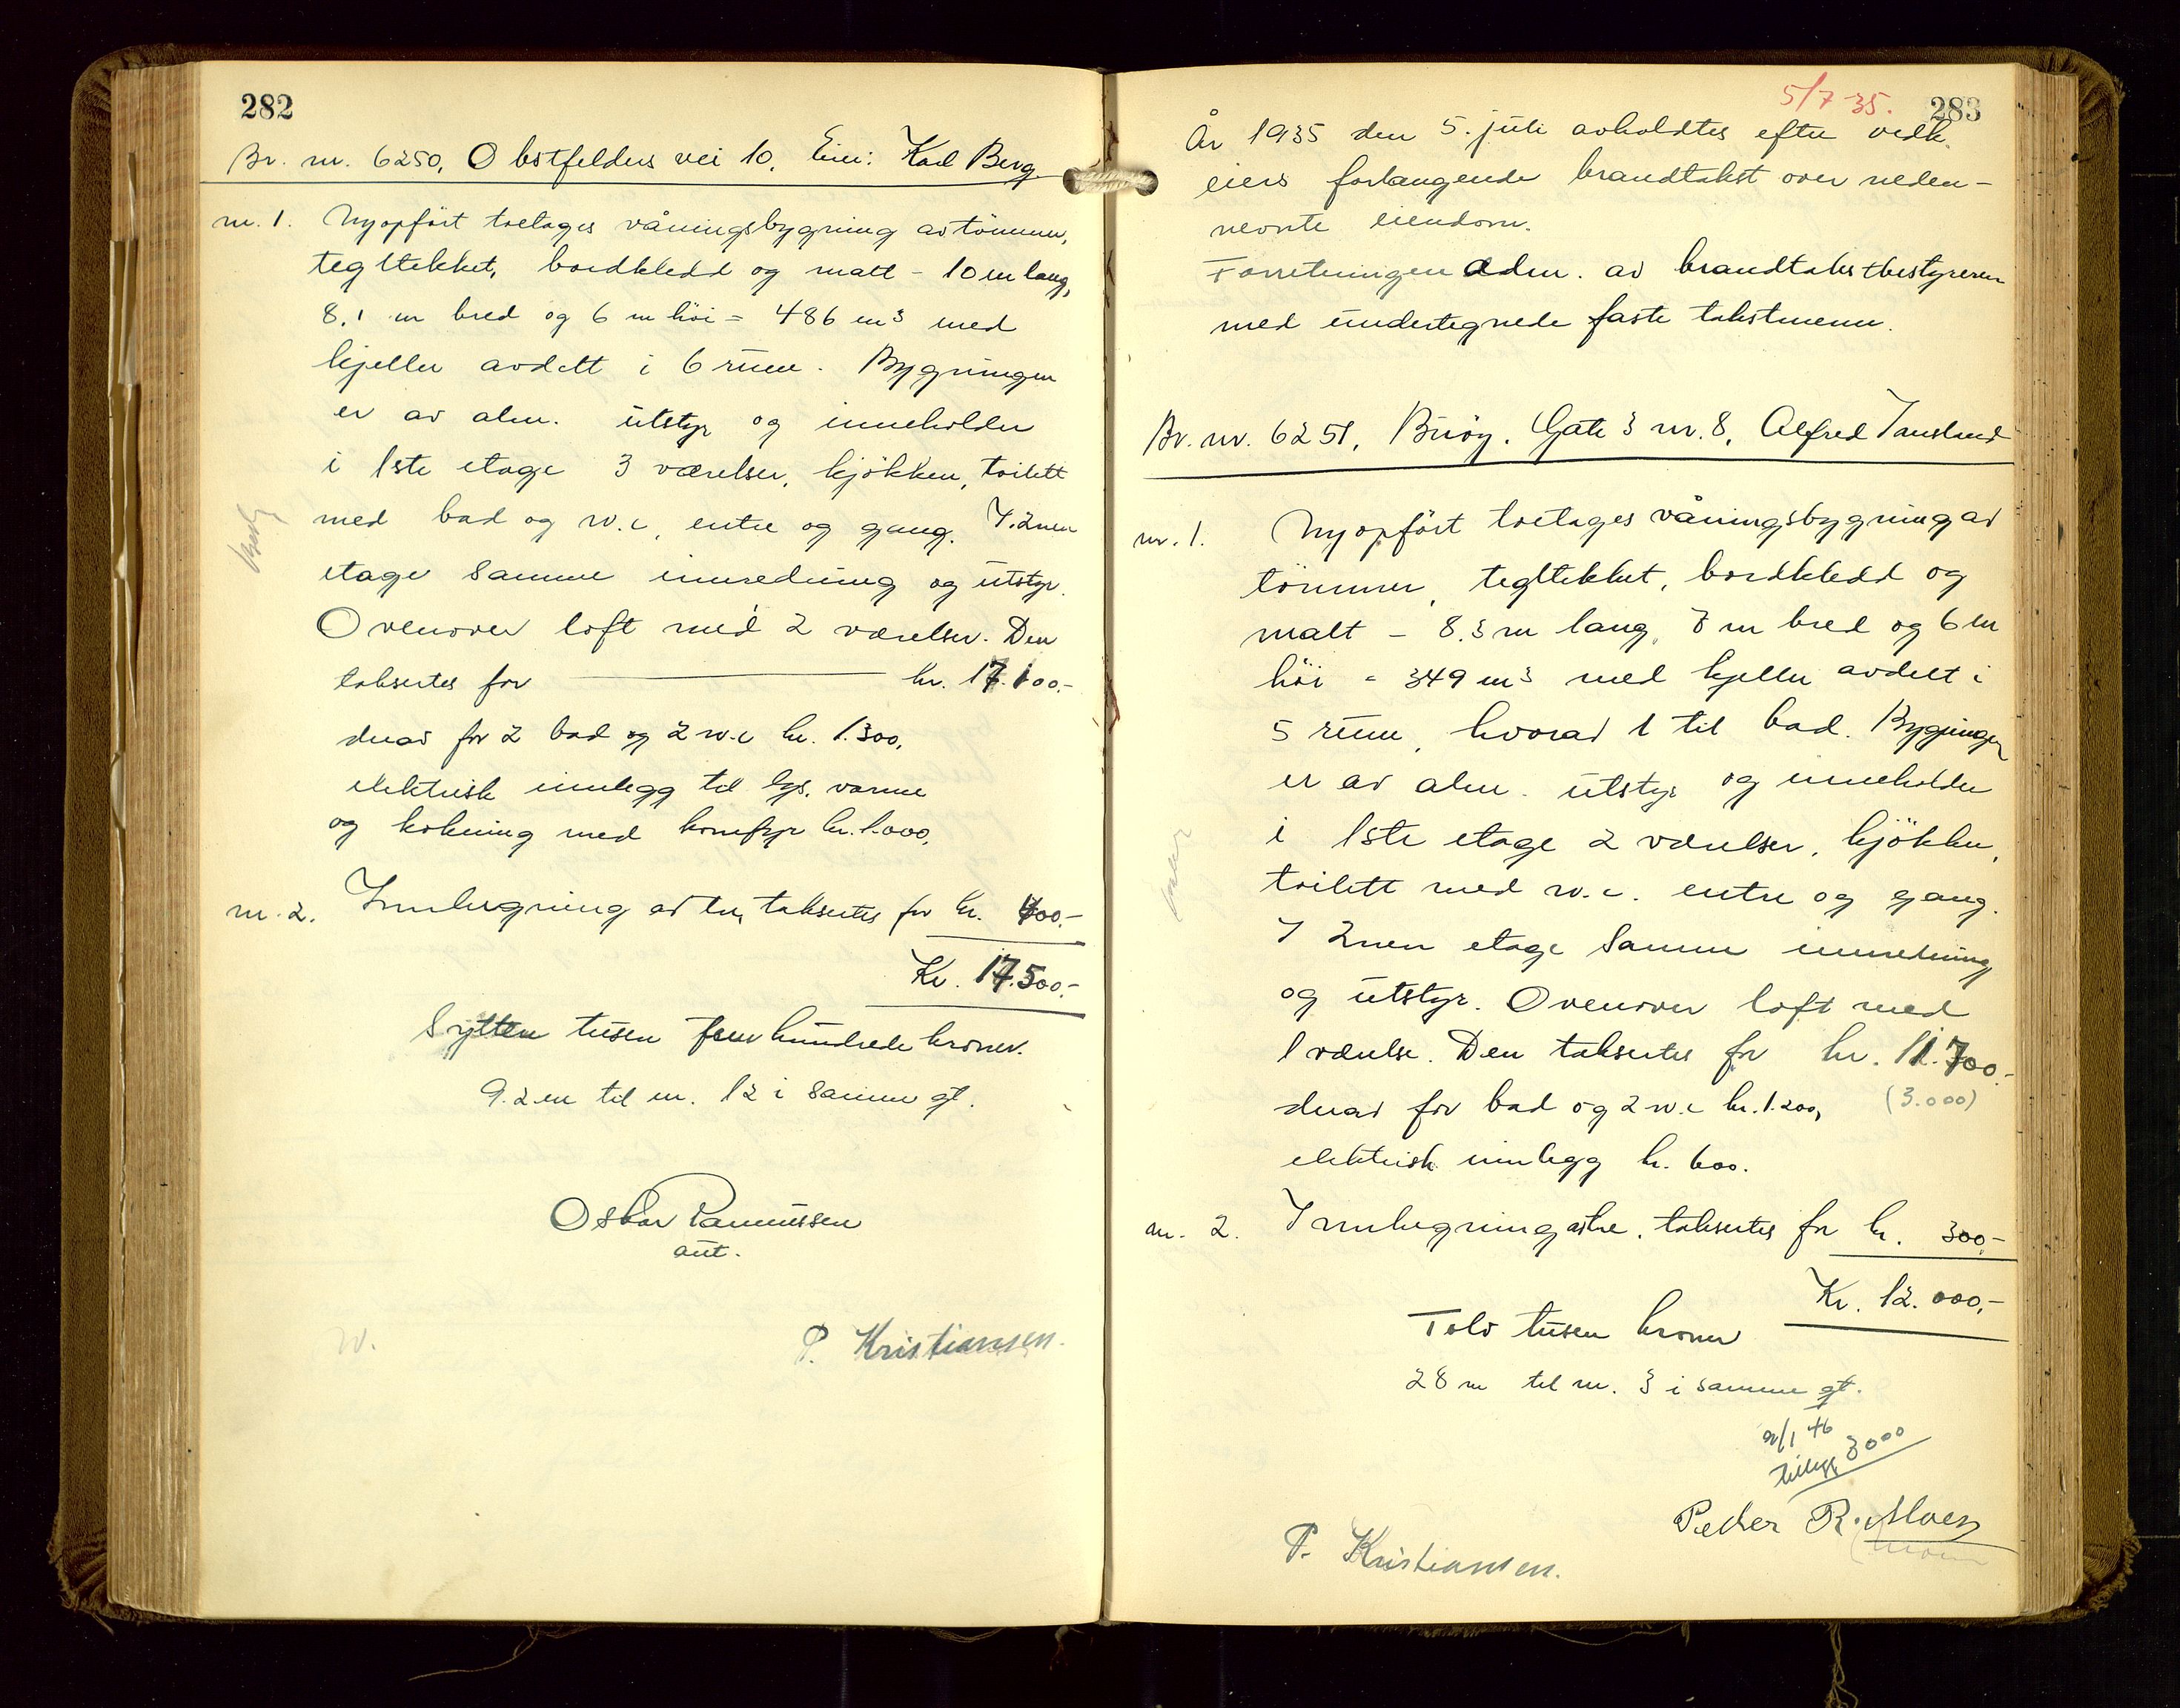 282
Br. nr. 6250, Obstfelders vei 10. Eier: Karl Berg.
nr. 1. Nyopført toetages våningsbygning av tømmer,
tegltekket, bordkledd og malt - 10 m lang,
8,1 m bred og 6 m høi = 486 m³ med
kjeller avdelt i 6 rum. Bygningen
er av alm. utstyr og inneholder
i 1ste etage 3 værelser, kjøkken, toilett
med bad og w.c, entre og gang. I. 2nen
etage samme innredning og utstyr.
Ovenover loft med 2 værelser. Den
taksertes for kr. 17.100.-
derav for 2 bad og 2 w.c kr. 1.300,
elektrisk innlegg til lys, varme
og kokning med komfyr kr. 1.000,
nr. 2. Innhegning av tre, taksertes for kr. 400.-
Kr. 17.500.-
Sytten tusen fem hundrede kroner.
9.2 m til nr. 12 i samme gt.
Oskar Rasmussen
aut.
P. Kristiansen.
5/7-35.
283
År 1935 den 5. juli avholdtes efter vedk.
eiers forlangende brandtakst over neden-
nevnte eiendom.
Forretningen adm. av brandtakstbestyreren
med undertegnede faste takstmenn.
Br. nr. 6251, Buøy. Gate 3 nr. 8, Alfred Tausland
nr. 1. Nyopført toetages våningsbygning av
tømmer, tegltekket, bordkledd og
malt - 8.3 m lang, 7 m bred og 6 m
høi = 349 m³ med kjeller avdelt i
5 rum, hvorav 1 til bad. Bygningen
er av alm. utstyr og inneholder
i 1ste etage 2 værelser, kjøkken,
toilett med w.c. entre og gang.
I 2nen etage samme innredning
og utstyr. Ovenover loft med
1 værelse. Den taksertes for kr. 11.700.-
derav for bad og 2 w.c kr. 1.200, (3.000)
elektrisk innlegg kr. 600.
nr. 2. Innhegning av tre, taksertes for kr. 300.-
Kr. 12.000,-
Tolv tusen kroner
28 m til nr. 3 i samme gt.
2/1 46
tillegg 3000
Peder R. Moen
P. Kristiansen.